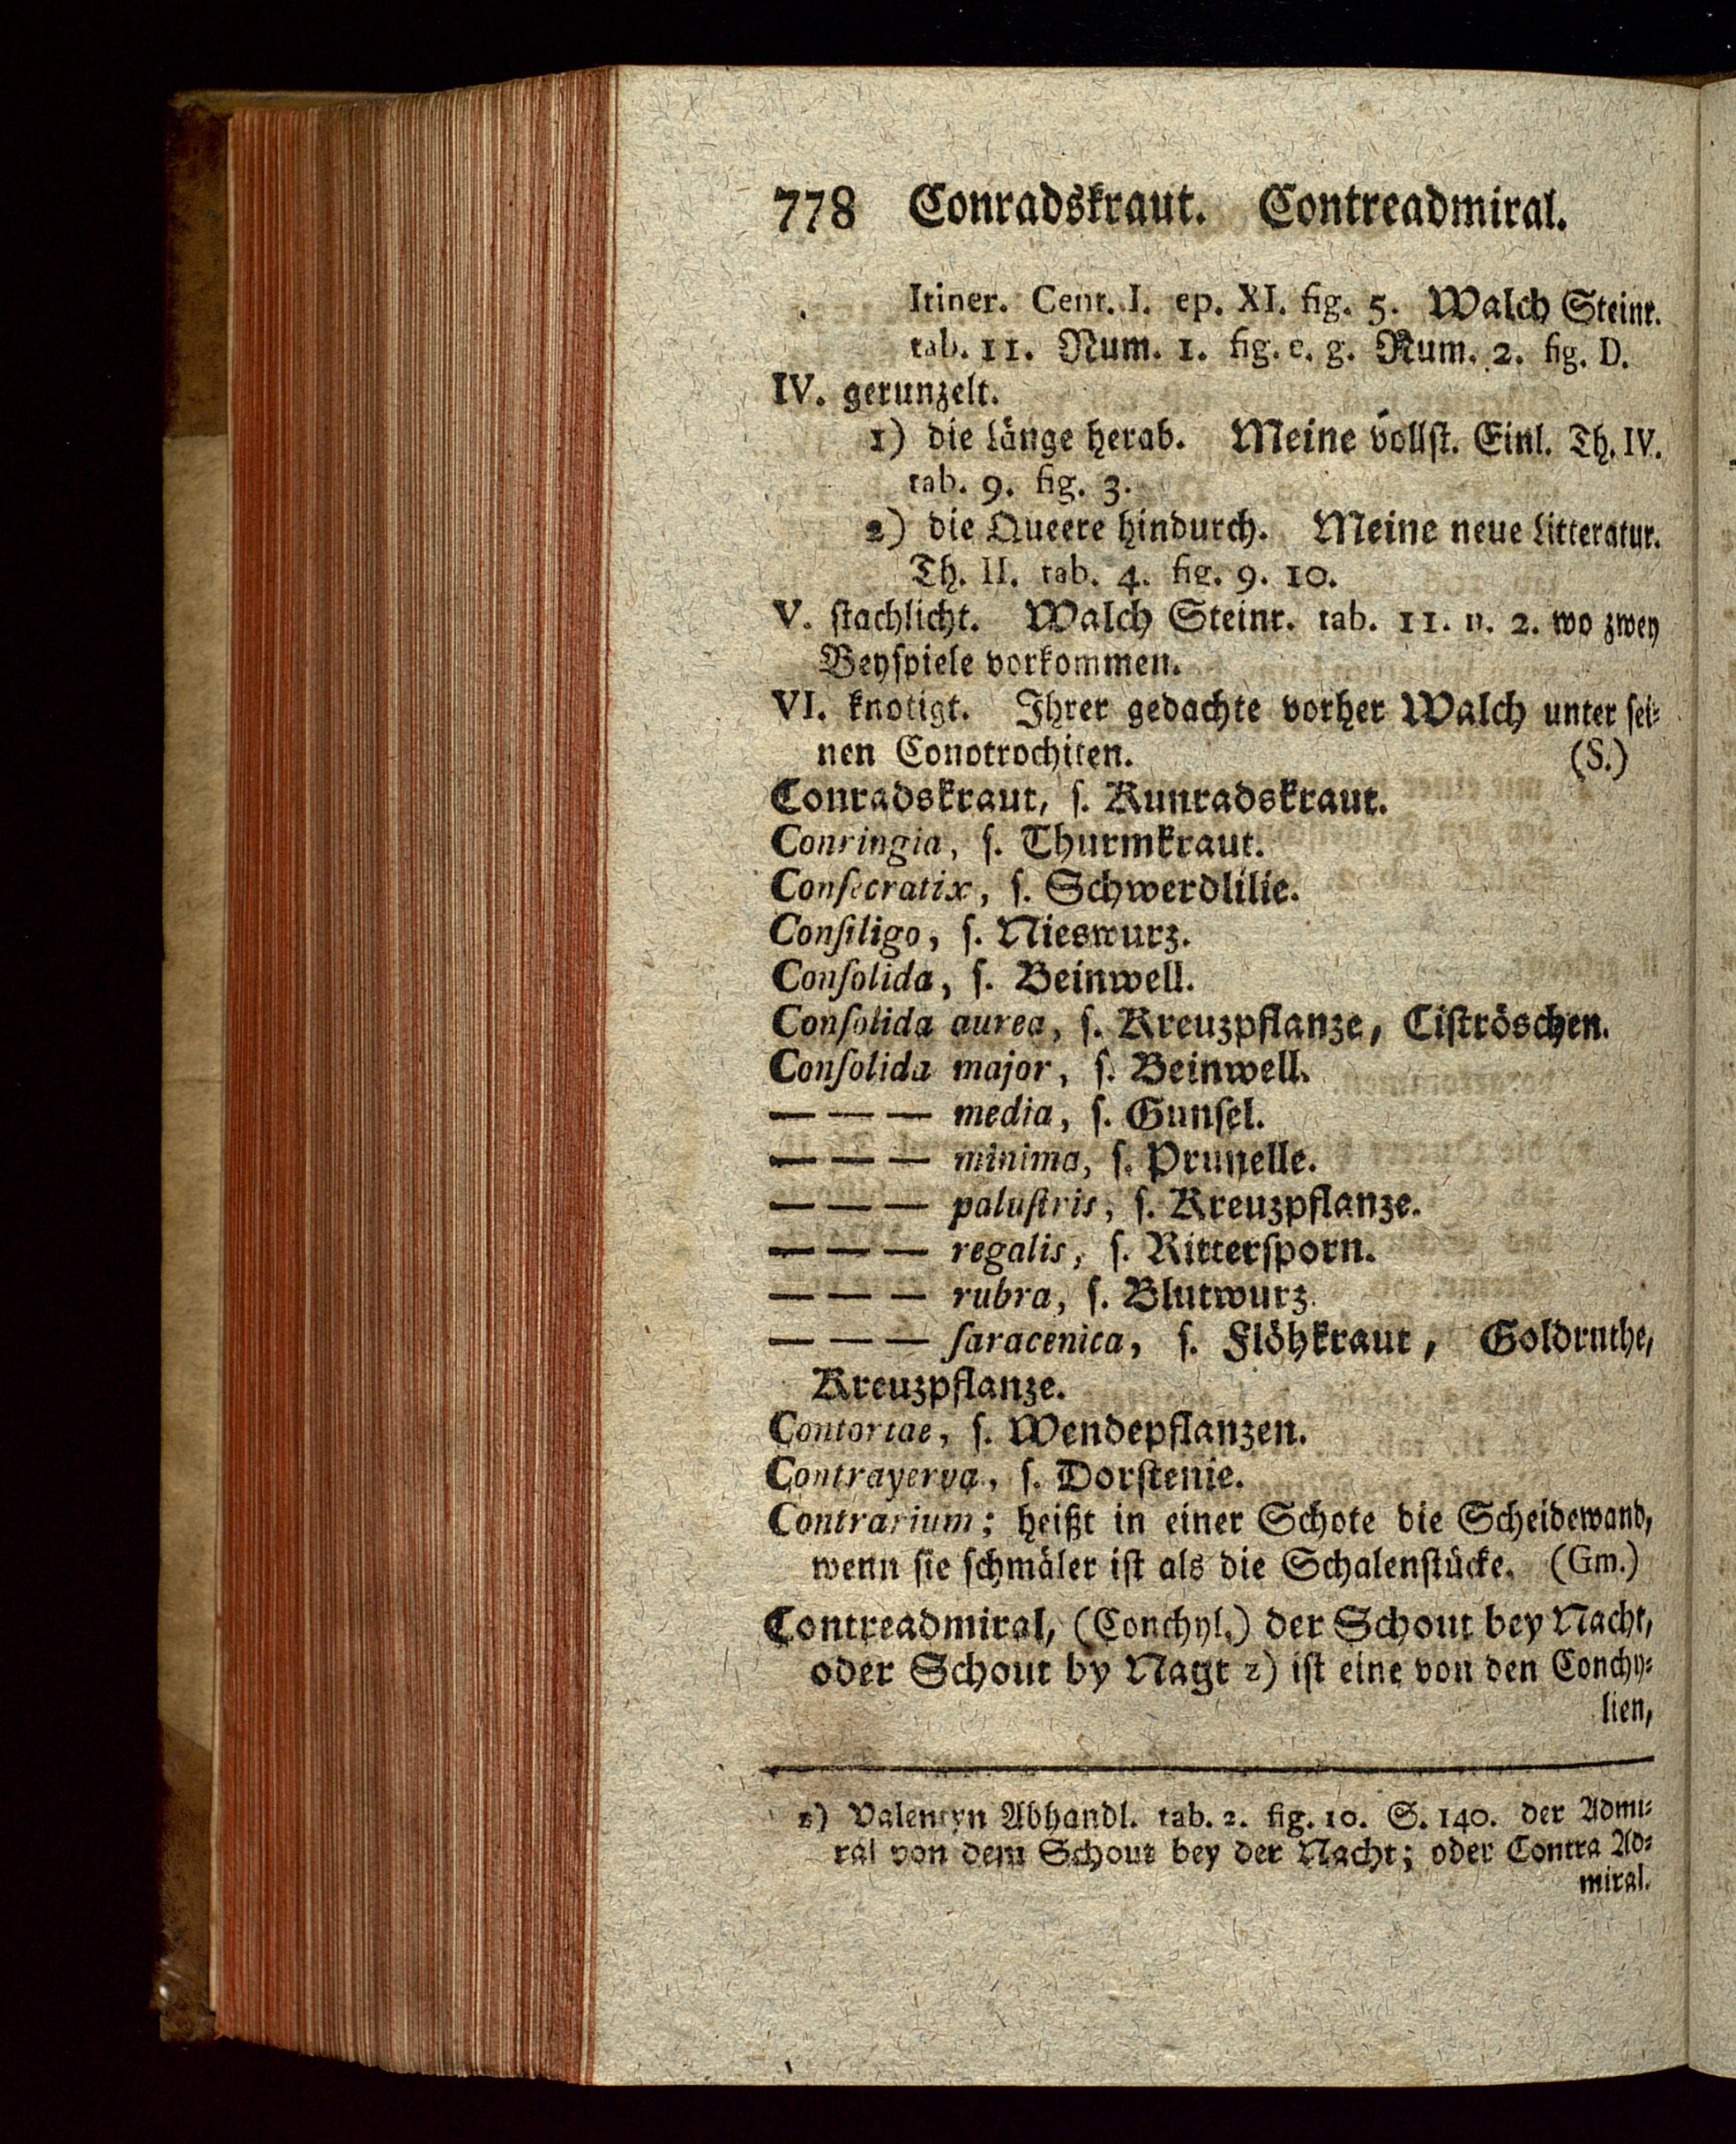 778 Conradskraut. Contreadmiral.
Itiner. Cent. I. ep. XI. fig. 5. Walch Steinr.
tab. 11. Num. 1. fig. e. g. Num. 2. fig. D.
IV. gerunzelt.
1) die Länge herab. Meine vollst. Einl. Th. IV.
tab. 9. fig. 3.
2) die Queere hindurch. Meine neue Litteratur.
Th. II. tab. 4. fig. 9. 10.
V. stachlicht. Walch Steinr. tab. 11. n. 2. wo zwey
Beyspiele vorkommen.
VI. knotigt. Ihrer gedachte vorher Walch unter sei-
nen Conotrochiten. (S.)
Conradskraut, s. Kunradskraut.
Conringia, s. Thurmkraut.
Consecratix, s. Schwerdlilie.
Consiligo, s. Nieswurz.
Consolida, s. Beinwell.
Consolida aurea, s. Kreuzpflanze, Ciströschen.
Consolida major, s. Beinwell.
— — — media, s. Gunsel.
— — — minima, s. Prunelle.
— — — palustris, s. Kreuzpflanze.
— — — regalis, s. Rittersporn.
— — — rubra, s. Blutwurz.
— — — saracenica, s. Flöhkraut, Goldruthe,
Kreuzpflanze.
Contortae, s. Wendepflanzen.
Contrayerva, s. Dorstenie.
Contrarium; heißt in einer Schote die Scheidewand,
wenn sie schmäler ist als die Schalenstücke. (Gm.)
Contreadmiral, (Conchyl.) der Schout bey Nacht,
oder Schout by Nagt z) ist eine von den Conchy-
lien,
z) Valentyn Abhandl. tab. 2. fig. 10. S. 140. der Admi-
ral von dem Schout bey der Nacht; oder Contra Ad-
miral.